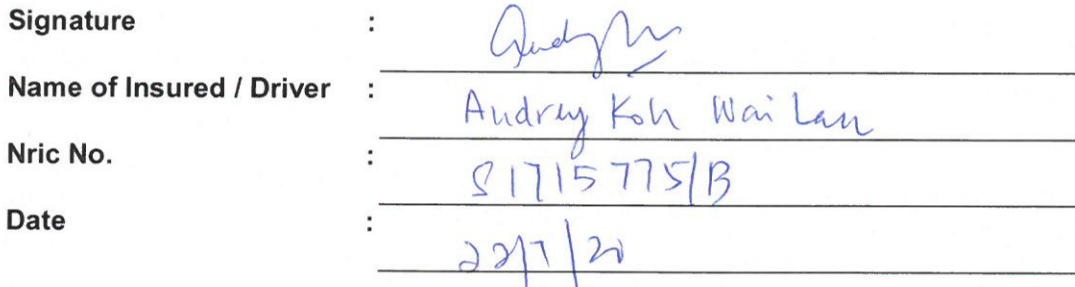 Signature :
Name of Insured / Driver : Audrey Koh Wai Lan
Nric No. : S1715775/B
Date : 22/7/20